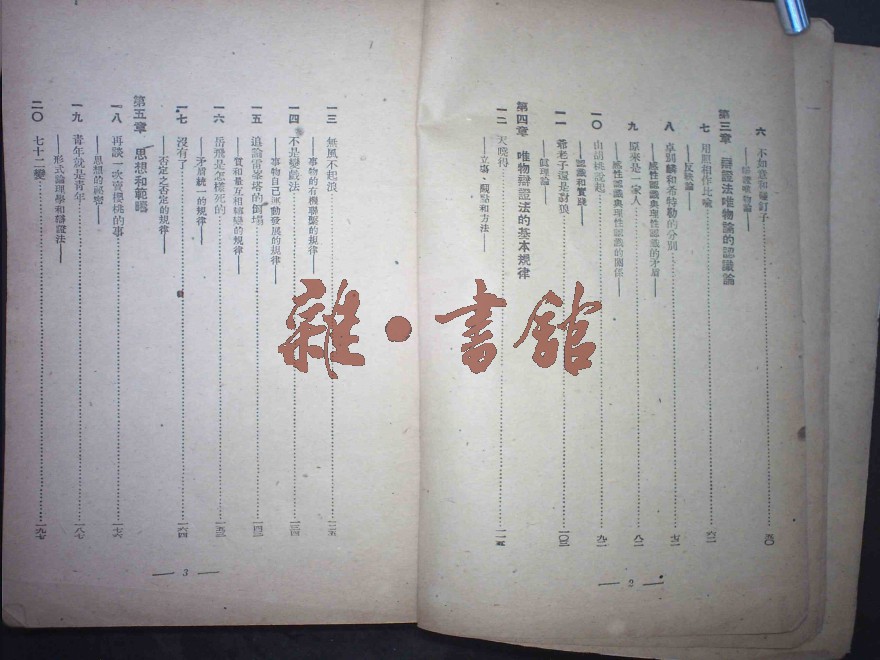 六 不如意和碰釘子 五〇
——辯證唯物論——
第三章 辯證法唯物論的認識論
七 用照相作比喻 六二
——反映論——
八 卓別麟和希特勒的分別 七二
——感性認識與理性認識的矛盾——
九 原來是一家人 八二
——感性認識與理性認識的關係——
一〇 由胡桃說起 九二
——認識和實踐——
一一 爺老子還是豺狼 一〇三
——眞理論——
第四章 唯物辯證法的基本規律
一二 天曉得 一一五
——立場、觀點和方法——
— 2 —
一三 無風不起浪 一二五
——事物的有機聯繫的規律——
一四 不是變戲法 一三四
——事物自己運動發展的規律——
一五 追論雷峯塔的倒塌 一四三
——質和量互相轉變的規律——
一六 岳飛是怎樣死的 一五三
——矛盾統一的規律——
一七 沒有了 一六四
——否定之否定的規律——
第五章 思想和範疇
一八 再談一次賣櫻桃的事 一七六
——思想的祕密——
一九 青年就是青年 一八七
——形式論理學和辯證法——
二〇 七十二變 一九七
— 3 —
雜·書館